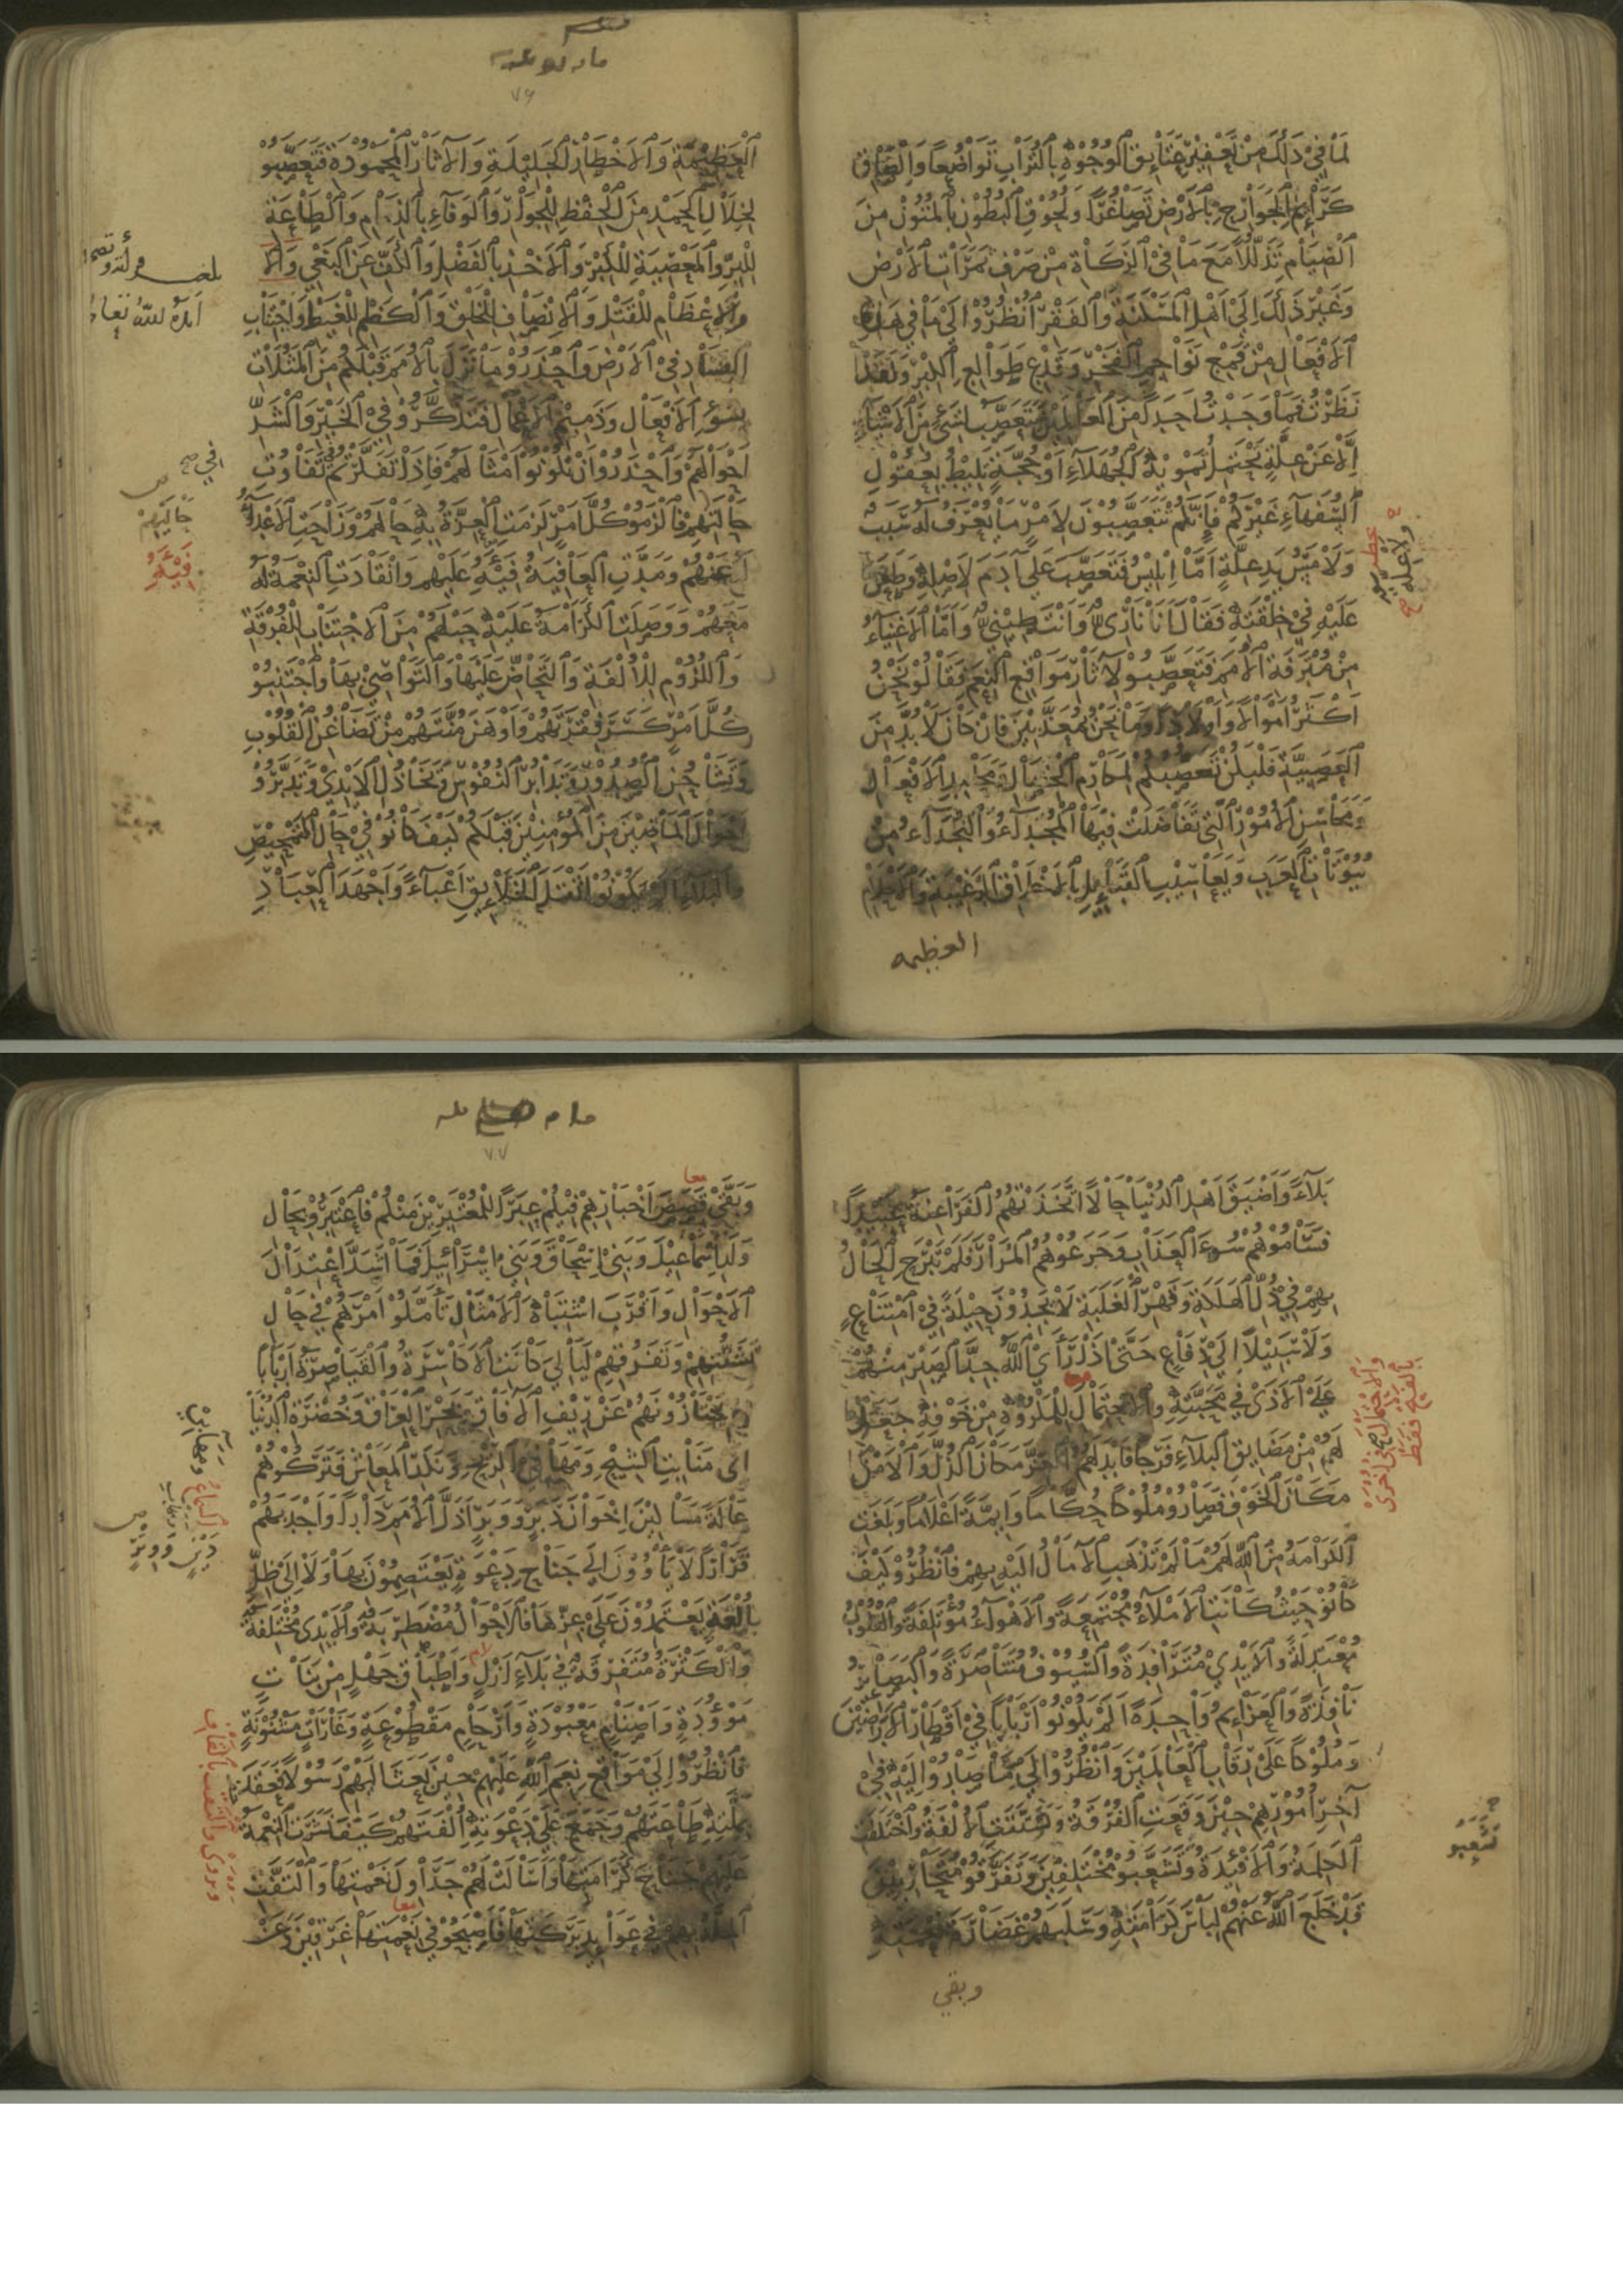 لما في ذلك من تعفير عتايق الوجوه بالتراب تواضعا والتصاق
كرايم الجوارح بالارض تصاغرا ولحوق البطون بالمتون من
الصيام تذللا مع ما في الزكاة من صرف ثمرات الارض
وغير ذلك الى اهل المسكنة والفقر انظروا الى ما في هذه
الافعال من قمع نواجم الفخر وقدع طوالع الكبر ولقد
نظرت فما وجدت احدا من العالمين يتعصب لشيء من الاشياء
الا عن علة تحتمل تمويه الجهلاء او حجة تليط بعقول
السفهاء غيركم فانكم تتعصبون لامر ما يعرف له سبب
ولا مس يد علة اما ابليس فتعصب على ادم لاصله وطعن
عليه في خلقته فقال انا ناري وانت طيني واما الاغنياء
من مترفة الامم فتعصبوا لاثار مواقع النعم فقالوا نحن
اكثر اموالا واولادا وما نحن بمعذبين فان كان لا بد من
العصبية فليكن تعصبكم لمكارم الخصال ومحامد الافعال
ومحاسن الامور التي تفاضلت فيها المجداء والنجداء من
بيوتات العرب ويعاسيب القبايل بالاخلاق الرغيبة والاحلام
العظيمه
ولا علة
٧٦
العظيمة والاخطار الجليلة والاثار المحمودة فتعصبوا
لخلال الحمد من الحفظ للجوار والوفاء بالذمام والطاعة
للبر والمعصية للكبر والاخذ بالفضل والكف عن البغي والا
والاعظام للقتل والانصاف للخلق والكظم للغيظ واجتناب
الفساد في الارض واحذروا ما نزل بالامم قبلكم من المثلات
بسوء الافعال وذميم الاعمال فتذكروا في الخير والشر
احوالهم واحذروا ان تكونوا امثالهم فاذا تفكرتم في تفاوت
حالتهم فالزموا كل امر لزمت العزة به حالهم وزاحت الاعداء
له عنهم ومدت العافية فيه عليهم وانقادت النعمة له
معهم ووصلت الكرامة عليه حبلهم من الاجتناب للفرقة
واللزوم للالفة والتحاض عليها والتواصي بها واجتنبوا
كل امر كسر فقرتهم واوهن منتهم من تضاغن القلوب
وتشاحن الصدور وتدابر النفوس وتخاذل الايدي وتدبروا
احوال الماضين من المؤمنين قبلكم كيف كانوا في حال التمحيص
والبلاء الم يكونوا اثقل الخلايق اعباء واجهد العباد
حاليهم
بلاء واضيق اهل الدنيا حالا اتخذتهم الفراعنة عبيدا
فساموهم سوء العذاب وجرعوهم المرار فلم تبرح الحال
بهم في ذل الهلكة وقهر الغلبة لا يجدون حيلة في امتناع
ولا سبيلا الى دفاع حتى اذا راى الله جد الصبر منهم
على الاذى في محبته والاحتمال للمكروه من خوفه جعل
لهم من مضايق البلاء فرجا فابدلهم العز مكان الذل والامن
مكان الخوف فصاروا ملوكا حكاما وايمة اعلاما وبلغت
الكرامة من الله لهم ما لم تذهب الامال اليه بهم فانظروا كيف
كانوا حيث كانت الاملاء مجتمعة والاهواء مؤتلفة والقلوب
معتدلة والايدي مترافدة والسيوف متناصرة والبصاير
نافذة والعزايم واحدة الم يكونوا اربابا في اقطار الارضين
وملوكا على رقاب العالمين وانظروا الى ما صاروا اليه في
اخر امورهم حين وقعت الفرقة وتشتتت الالفة واختلفت
الكلمة والافئدة وتشعبوا مختلفين وتفرقوا متحاربين
قد خلع الله عنهم لباس كرامته وسلبهم غضارة نعمته
وبقي
تشعبوا
بالفتح فقط
٧٧
وبقى قصص اخبارهم فيكم عبرا للمعتبرين منكم فاعتبروا بحال
ولد اسماعيل وبني اسحاق وبني اسرائيل فما اشد اعتدال
الاحوال واقرب اشتباه الامثال تاملوا امرهم في حال
تشتتهم وتفرقهم ليالي كانت الاكاسرة والقياصرة اربابا
لهم يحتازونهم عن ريف الافاق وبحر العراق وخضرة الدنيا
الى منابت الشيح ومهافي الريح ونكد المعاش فتركوهم
عالة مساكين اخوان دبر ووبر اذل الامم دارا واجدبهم
قرارا لا يأوون الى جناح دعوة يعتصمون بها ولا الى ظل
الفة يعتمدون على عزها فالاحوال مضطربة والايدي مختلفة
والكثرة متفرقة في بلاء ازل واطباق جهل من بنات
موؤدة واصنام معبودة وارحام مقطوعة وغارات مشنونة
فانظروا الى مواقع نعم الله عليهم حين بعث اليهم رسولا فعقد
بملته طاعتهم وجمع على دعوته الفتهم كيف نشرت النعمة
عليهم جناح كرامتها واسالت لهم جداول نعيمها والتفت
الملة بهم في عوايد بركتها فاصبحوا في نعمتها غرقين وعن
معا